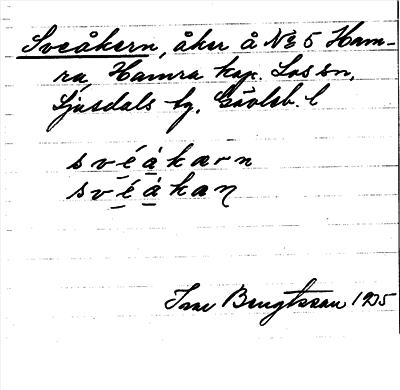 Sveåkern, åker å № 5 Ham-
ra, Hamra kap. Los sn,
Ljusdals tg, Gävleb. l
svéákærn
svéákaɳ
Bengtsson 1935